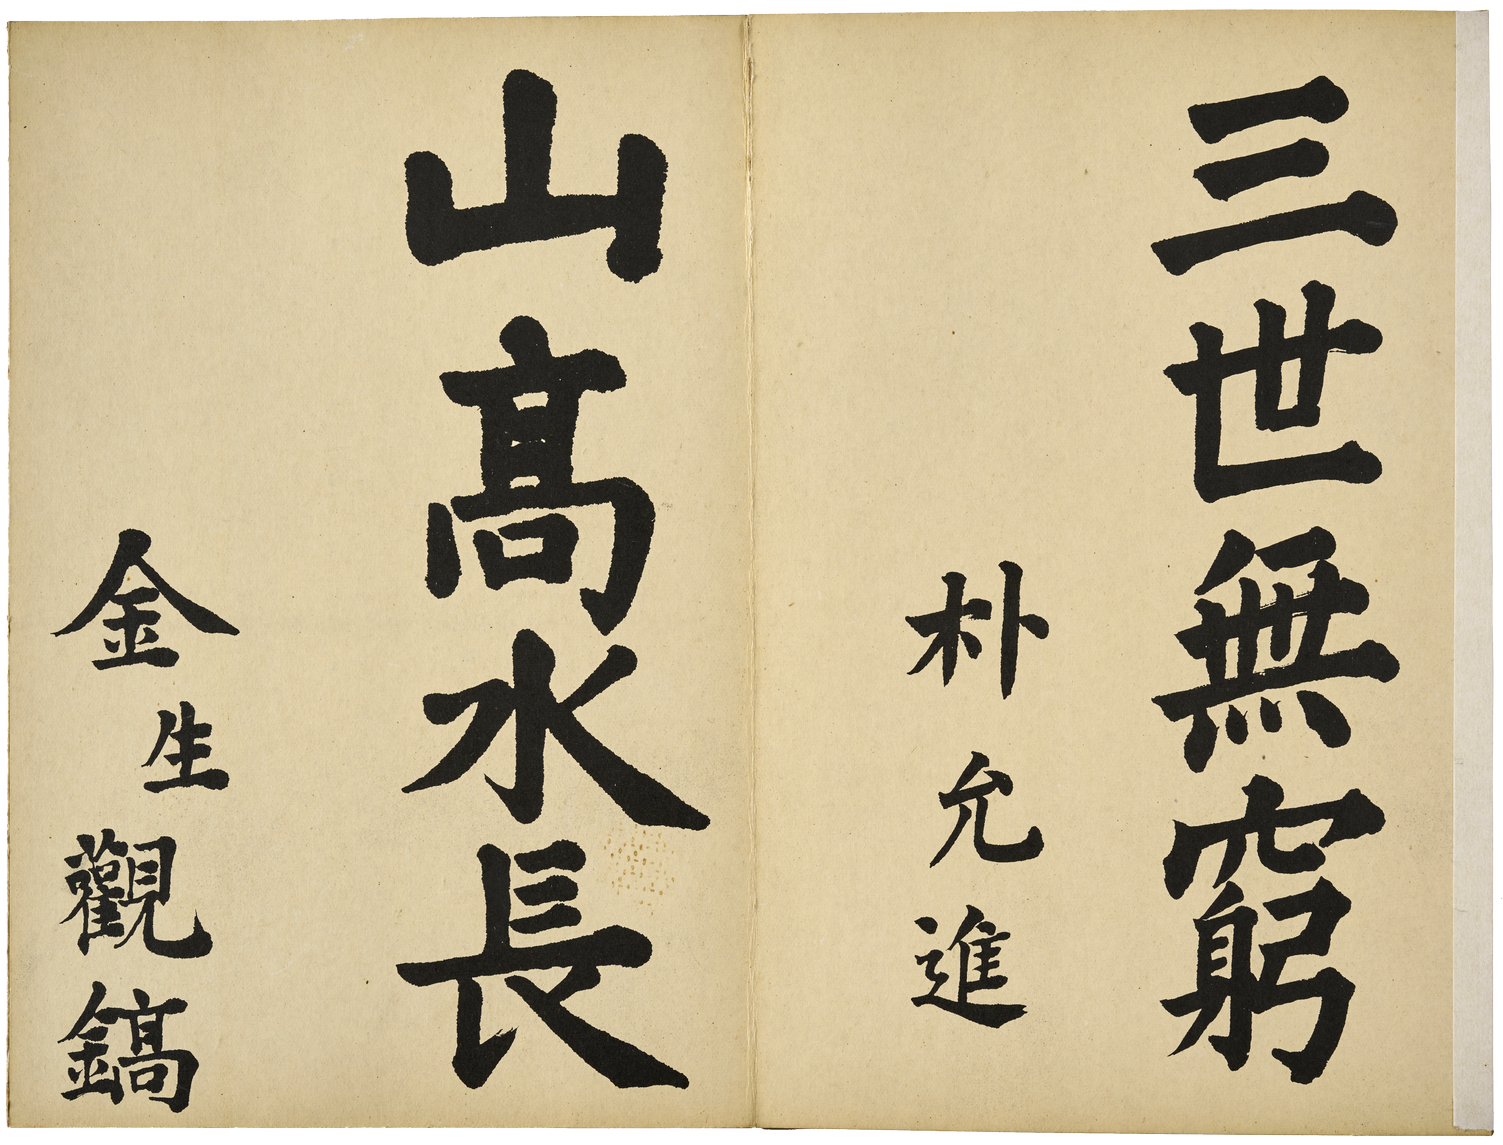 三世無窮
朴允進
山高水長
金生觀鎬